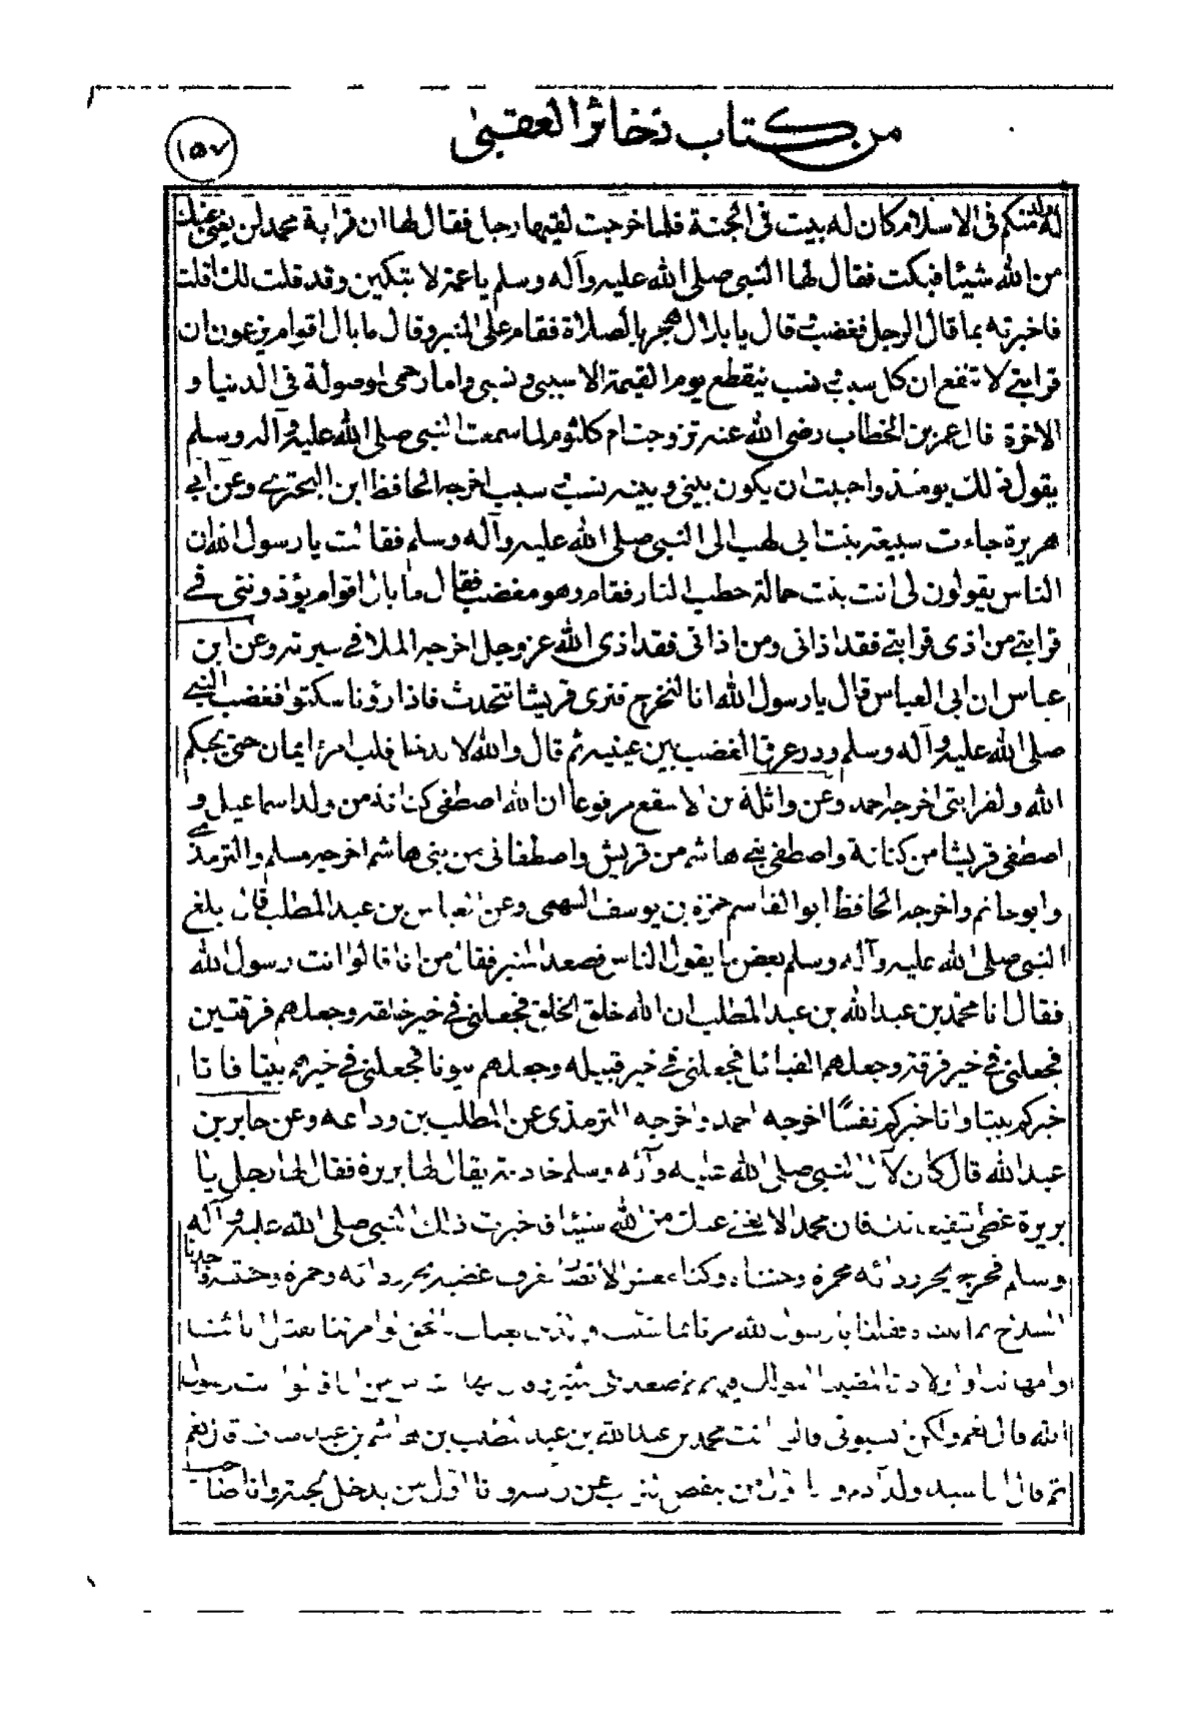 من كتاب ذخائر العقبى
١٥٧
له ولد منكم فى الاسلام كان له بيت فى الجنة فلما خرجت لقيها رجل فقال لها ان قرابة محمد لن يغنى عنك
من الله شيئا فبكت فقال لها النبى صلى الله عليه وآله وسلم يا عمة لا تبكين وقد قلت لك ما قلت
فاخبرته بما قال الرجل فغضب قال يا بلال هجر بالصلاة فقام على المنبر وقال ما بال اقوام يزعمون ان
قرابتى لا تنفع ان كل سبب ونسب ينقطع يوم القيمة الا سببى ونسبى واما رحمى موصولة فى الدنيا و
الاخرة قال عمر بن الخطاب رضى الله عنه تزوجت ام كلثوم لما سمعت النبى صلى الله عليه وآله وسلم
يقول ذلك يومئذ واحببت ان يكون بينى وبينه نسب سبب اخرجه الحافظ ابن البخترى وعن ابى
هريرة جاءت سبيعة بنت ابى لهب الى النبى صلى الله عليه وآله وسلم فقالت يا رسول الله ان
الناس يقولون لى انت بنت حمالة حطب النار فقام وهو مغضب فقال ما بال اقوام يؤذوننى فى
قرابتى من اذى قرابتى فقد اذانى ومن اذانى فقد اذى الله عز وجل اخرجه الملا فى سيرته وعن ابن
عباس ان ابى العباس قال يا رسول الله انا لنخرج فنرى قريشا تتحدث فاذا رؤنا سكتوا فغضب النبى
صلى الله عليه وآله وسلم ودر عرق الغضب بين عينيه ثم قال والله لا يدخل قلب امرئ ايمان حتى يحبكم
الله ولقرابتى اخرجه احمد وعن واثلة بن الاسقع مرفوعا ان الله اصطفى كنانة من ولد اسماعيل و
اصطفى قريشا من كنانة واصطفى بنى هاشم من قريش واصطفانى من بنى هاشم اخرجه مسلم والترمذى
وابو حاتم واخرجه الحافظ ابو القاسم حمزة بن يوسف السهمى وعن العباس بن عبد المطلب قال بلغ
النبى صلى الله عليه وآله وسلم بعض ما يقول الناس فصعد المنبر فقال من انا قالوا انت رسول الله
فقال انا محمد بن عبد الله بن عبد المطلب ان الله خلق الخلق فجعلنى فى خير خلقه وجعلهم فرقتين
فجعلنى فى خير فرقة وجعلهم القبائل فجعلنى فى خير قبيله وجعلهم بيوتا فجعلنى فى خيرهم بيتا فانا
خيركم بيتا وانا خيركم نفسًا اخرجه احمد واخرجه الترمذى عن المطلب بن وداعه وعن جابر بن
عبد الله قال كان لآل النبى صلى الله عليه وآله وسلم خادمة يقال لها بريرة فقال لها رجل يا
بريرة غطى فان محمدا لا يغنى عنك من الله شيئا فاخبرت ذلك النبى صلى الله عليه وآله
وسلم فخرج يجر ردائه محمرة وجنتاه وكنا معشر الانصار نعرف غضبه بجر ردائه وحمرة وجنتيه فاخذنا
السلاح ثم اتيناه فقلنا يا رسول الله مرنا بما شئت بعثك بالحق لو امرتنا بقتل ابائنا
وامهاتنا واولادنا
الله قال نعم ولكن انسبونى قالوا انت محمد بن عبد الله بن عبد المطلب بن هاشم بن عبد مناف قال نعم
ثم قال انا سيد ولد آدم و اول من ينفض التراب عن راسه وانا اول من يدخل الجنة وانا صاحب